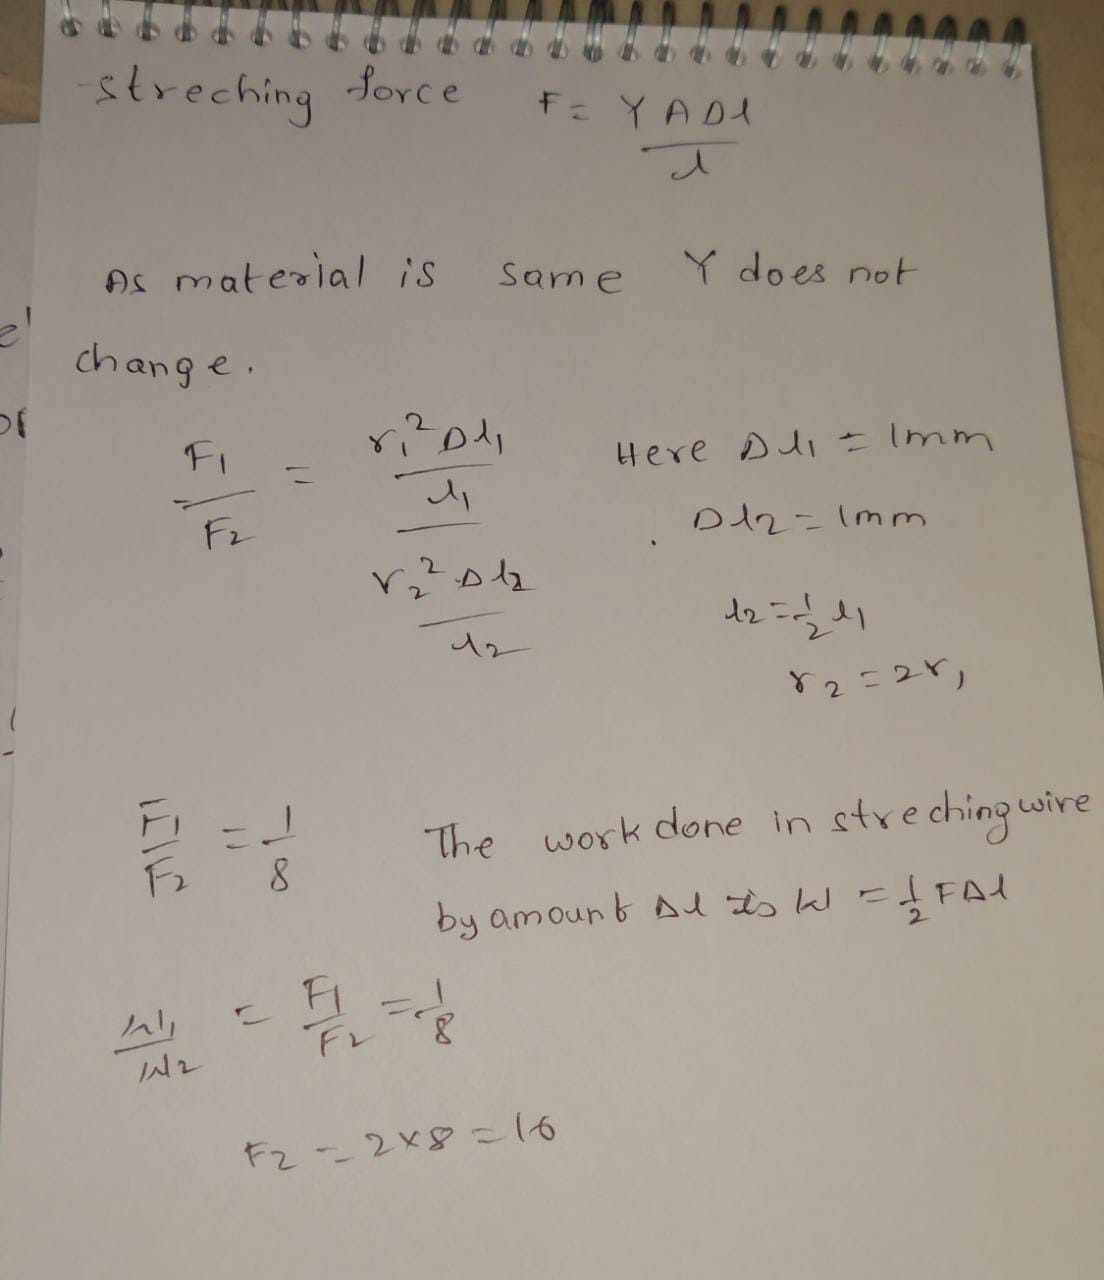 streching force F = Y A Δl / l
As material is same Y does not
change.
F1/F2 = (r1² Δl1 / l1) / (r2² Δl2 / l2)
Here Δl1 = 1mm
Δl2 = 1mm
l2 = 1/2 l1
r2 = 2r1
F1/F2 = 1/8
The work done in streching wire
by amount Δl is W = 1/2 FΔl
W1/W2 = F1/F2 = 1/8
F2 = 2×8 = 16